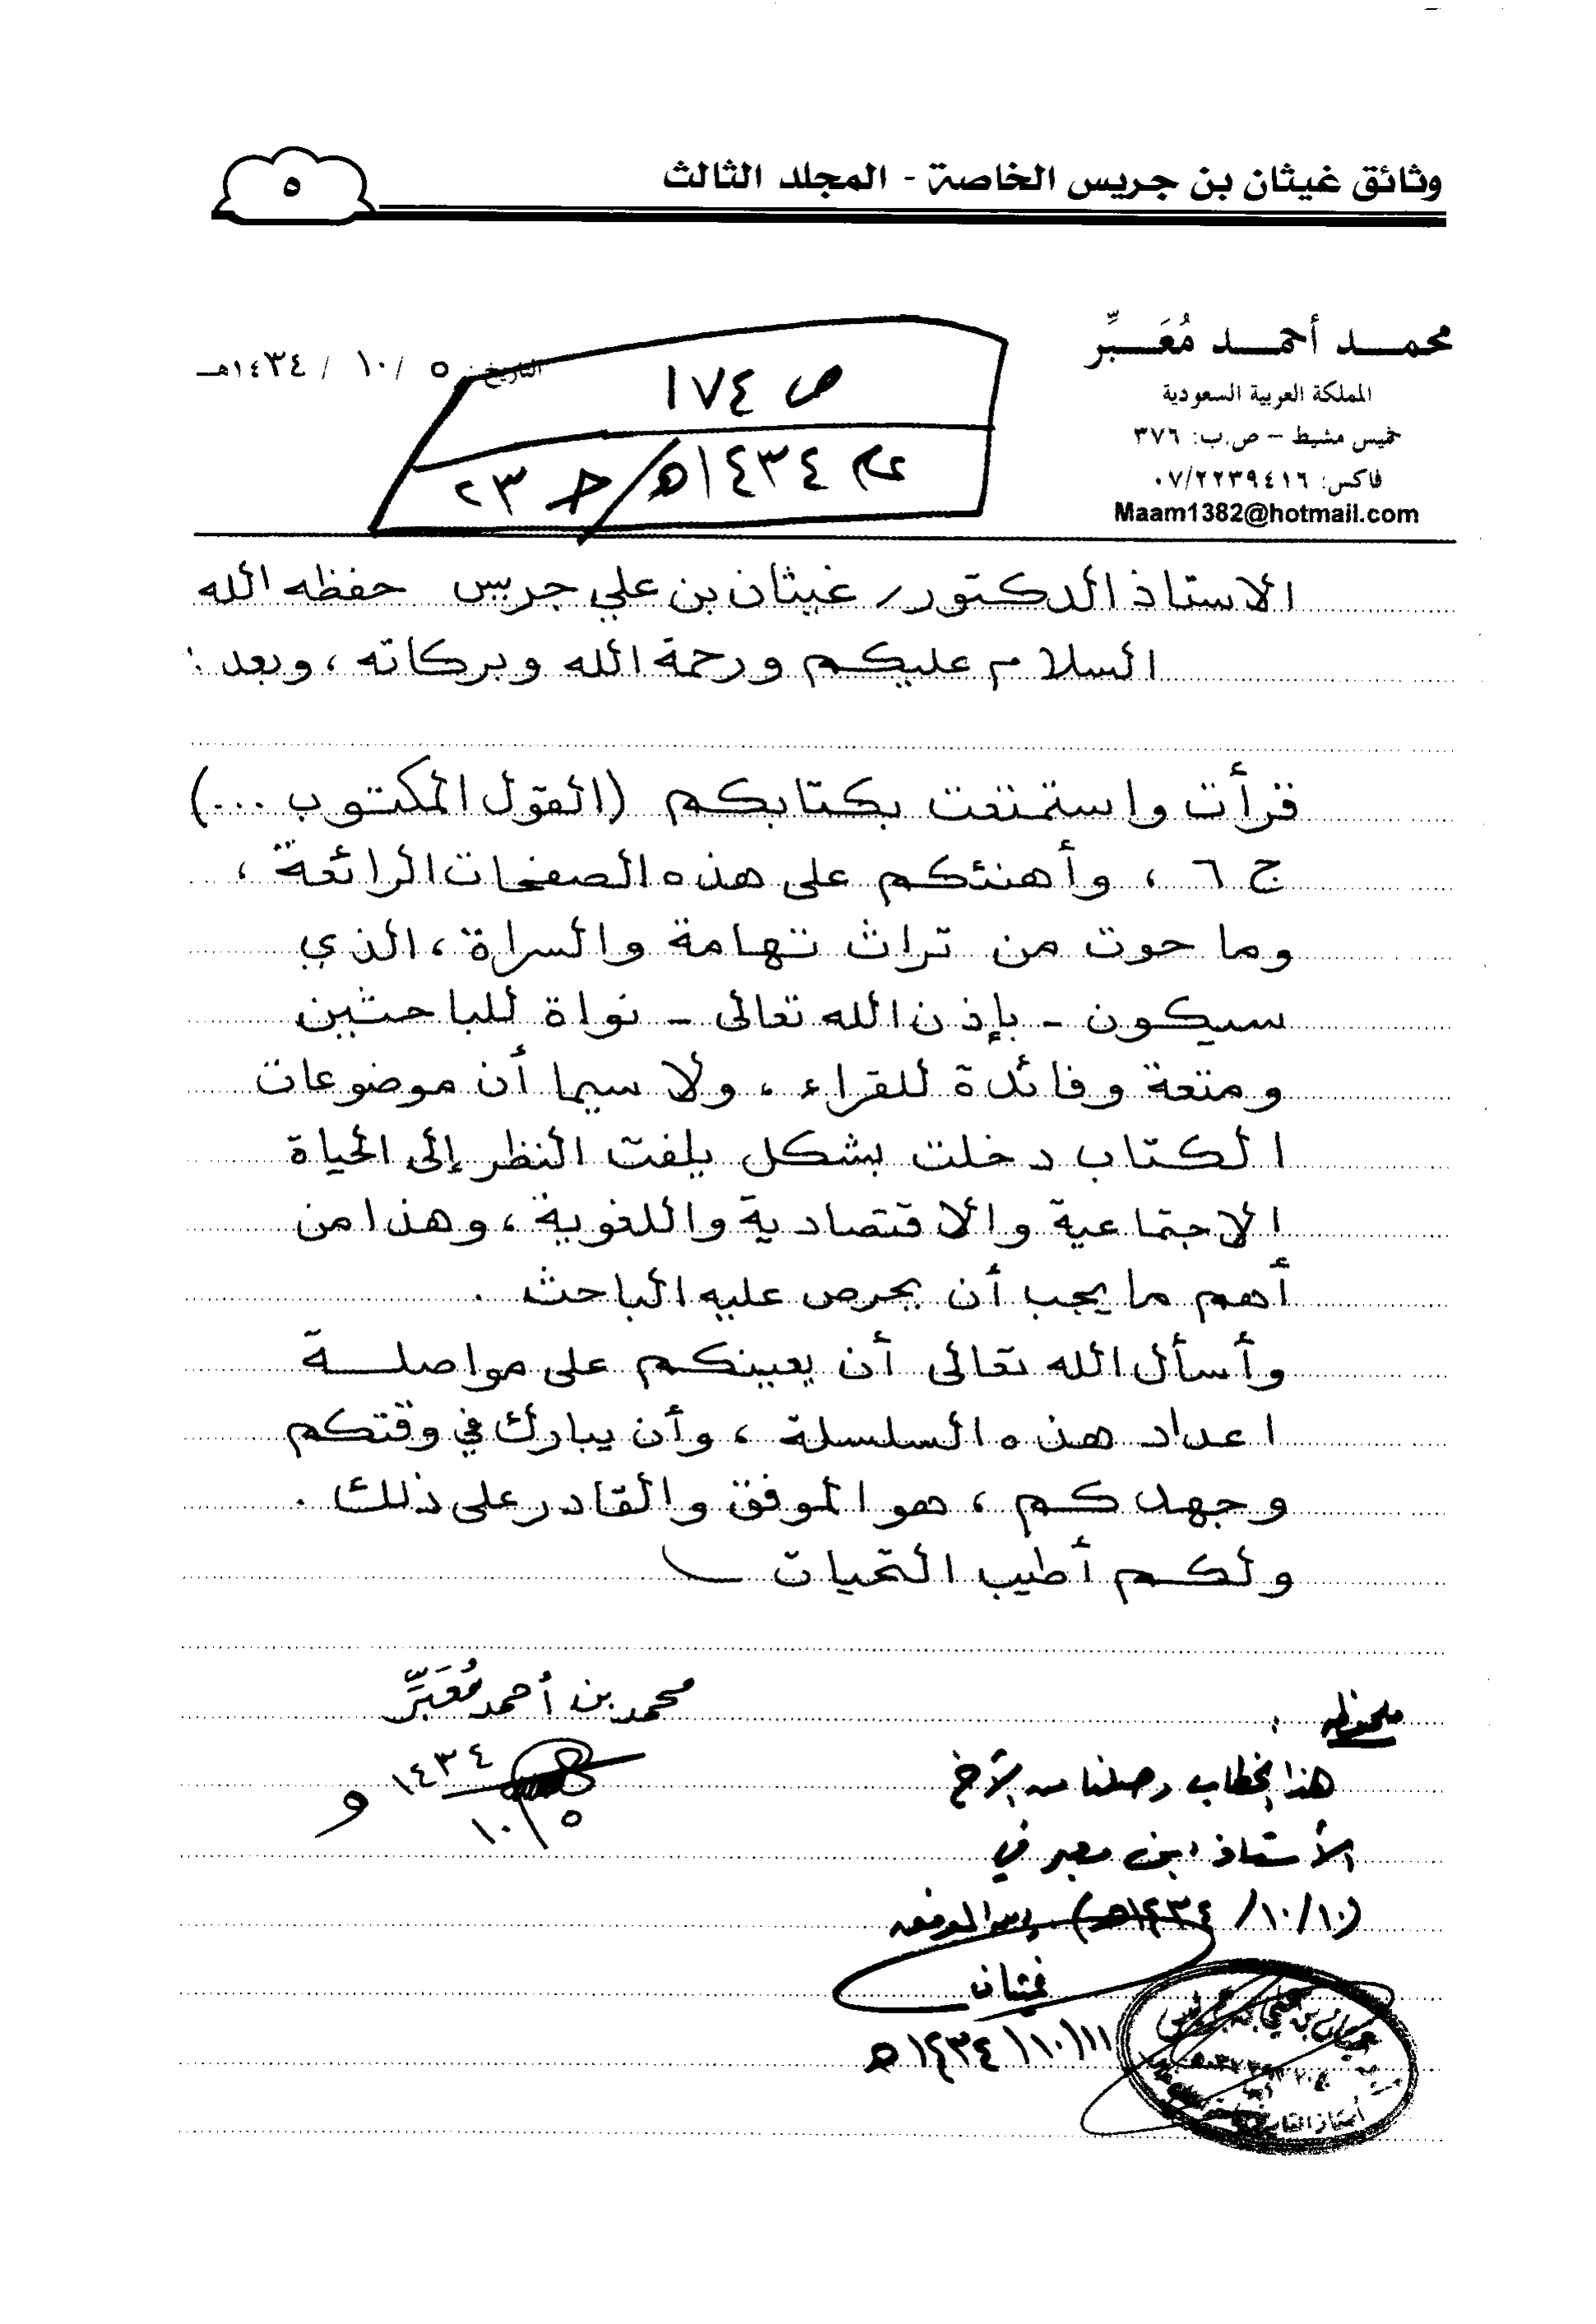 وثائق غيثان بن جريس الخاصة - المجلد الثالث
٥
محمد أحمد مُعَبِّر
المملكة العربية السعودية
خميس مشيط - ص.ب: ٣٧٦
فاكس: ٠٧/٢٢٣٩٤١٦
Maam1382@hotmail.com
التاريخ: ٥ / ١٠ / ١٤٣٤هـ
ص ١٧٤
عام ١٤٣٤هـ / ج ٢٣
الاستاذ الدكتور/ غيثان بن علي جريس حفظه الله
السلام عليكم ورحمة الله وبركاته ، وبعد :
قرأت واستمتعت بكتابكم (القول المكتوب ...)
ج ٦ ، وأهنئكم على هذه الصفحات الرائعة ،
وما حوت من تراث تهامة والسراة ، الذي
سيكون - بإذن الله تعالى - نواة للباحثين
ومتعة وفائدة للقراء ، ولا سيما أن موضوعات
الكتاب دخلت بشكل يلفت النظر إلى الحياة
الاجتماعية والاقتصادية واللغوية ، وهذا من
أهم ما يجب أن يحرص عليه الباحث .
وأسأل الله تعالى أن يعينكم على مواصلة
اعداد هذه السلسلة ، وأن يبارك في وقتكم
وجهدكم ، هو الموفق والقادر على ذلك .
ولكم أطيب التحيات
محمد بن أحمد مُعَبِّر
١٤٣٤
١٠/٥
ملحوظه :
هذا الخطاب وصلنا من الأخ
الأستاذ ابن معبر في
(١٠/١٠/ ١٤٣٤هـ) والله الموفق
غيثان
١١/١٠/١٤٣٤هـ
غيثان بن علي بن جريس